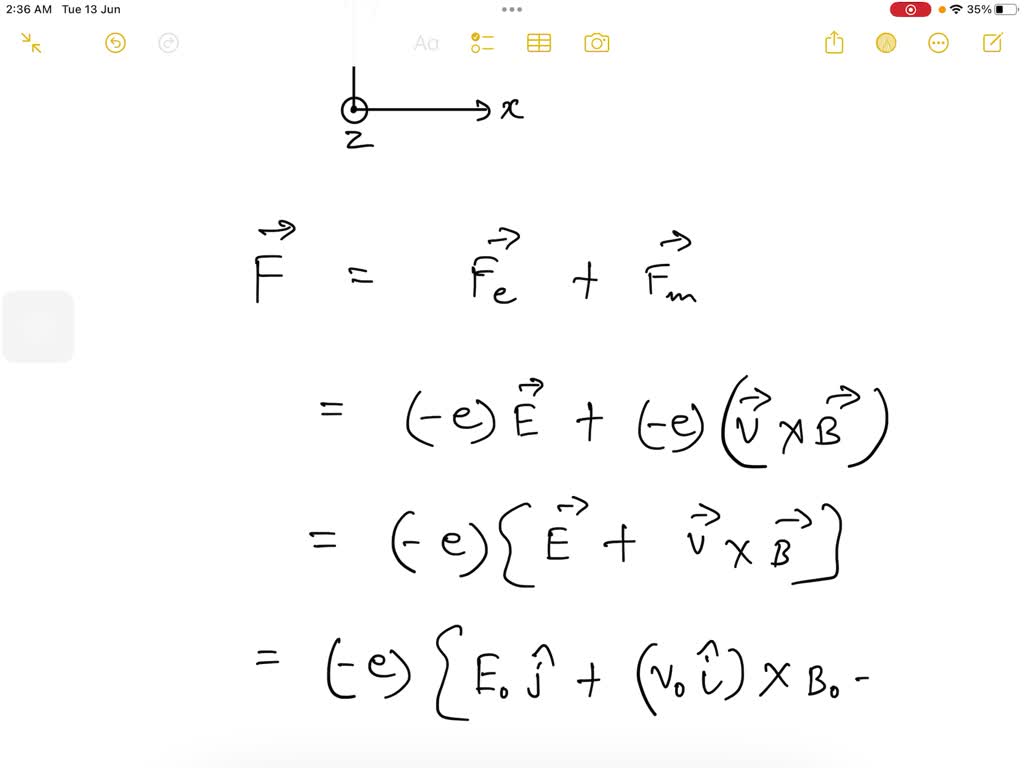 2:36 AM Tue 13 Jun
35%
Aa
x
z
F⃗ = F⃗e + F⃗m
= (-e) E⃗ + (-e) (v⃗ × B⃗)
= (-e) [E⃗ + v⃗ × B⃗]
= (-e) [E₀ ĵ + (v₀ î) × B₀ -